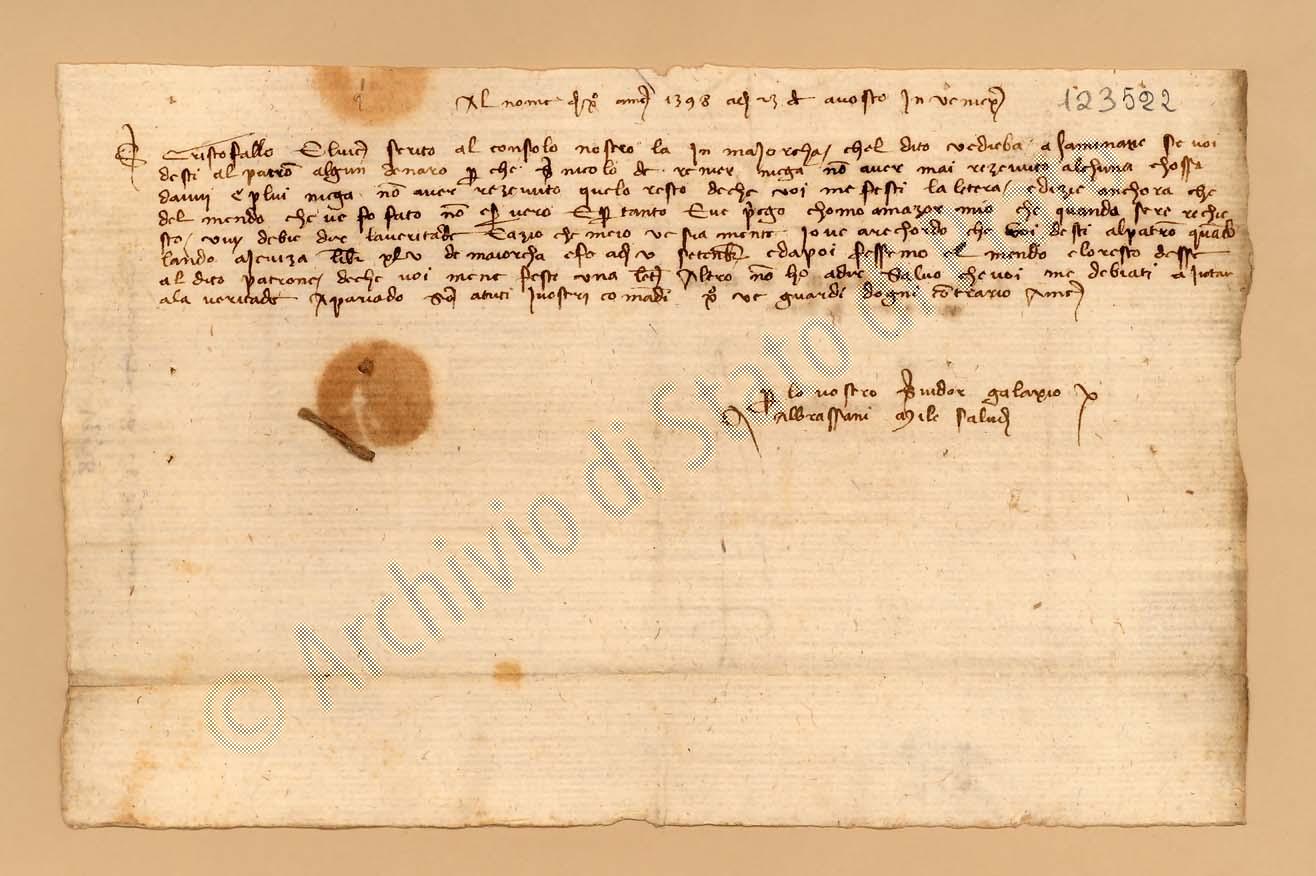 Al nome di xpo amen 1398 adi 23 de avosto In venexia
123522
Cristofallo El vien scrito al consolo nostro la In majorcha chel dito ve dieba asaminare se voi
desti al patron algun denaro per che ser nicolo de rener niega non aver mai rezevuto alchuna chossa
da vui E plui niega non aver rezevuto quelo resto de che voi me festi la letera e dizie anchora che
del mendo che ve fo fato non es vero E per tanto E ve prego chomo amazor mio che quando sere rechie
sto vui debie dir la veritade E azio che meio ve sia mente Io ve arechordo che voi desti al patro quando
lando a Jeviza libr xlv de maiorcha e fo adi v setenbr e da poi fessemo el mendo e lo resto desse
al dito patrone de che voi me ne feste una letera Altro non ho a dir Salvo che voi me debiati aJutar
ala veritade Apariado son a tuti I vostri comandi xpo ve guardi dogni contrario Amen
per lo vostro servidor galaxio
Abrassani Mile salud
© Archivio di Stato di